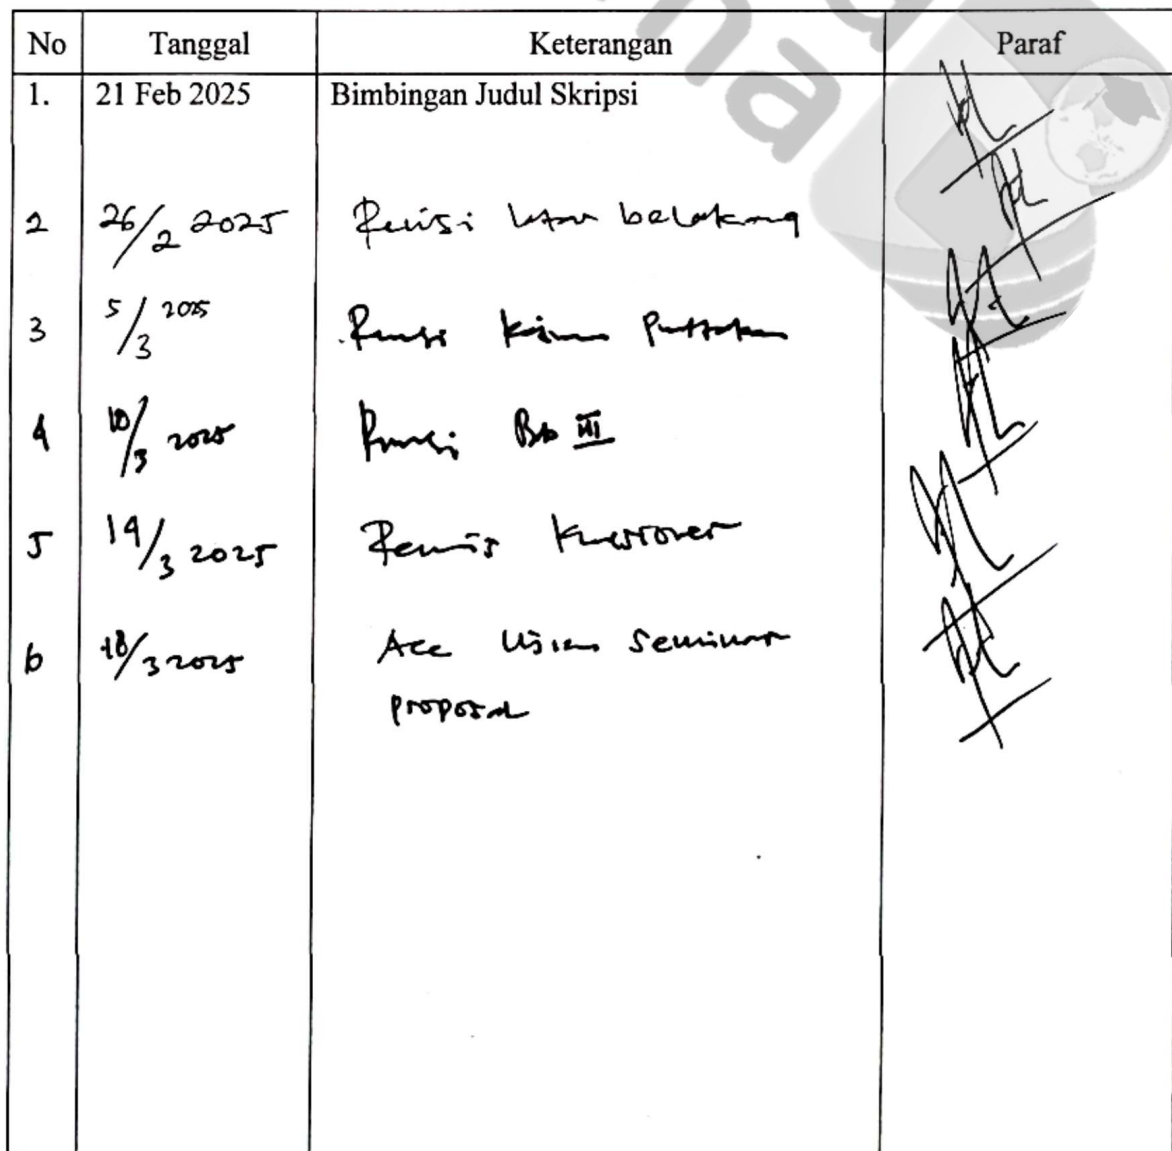 No Tanggal Keterangan Paraf
1. 21 Feb 2025 Bimbingan Judul Skripsi
2 26/2 2025 Revisi latar belakang
3 5/3 2025 Revisi Kajian Pustaka
4 10/3 2025 Revisi Bab III
5 14/3 2025 Revisi Kuesioner
6 18/3 2025 Acc Ujian Seminar
proposal